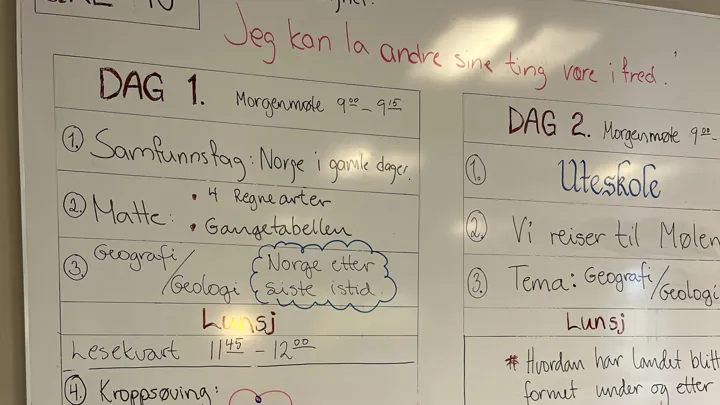 Jeg kan la andre sine ting være i fred.
DAG 1. Morgenmøte 9⁰⁰ - 9¹⁵
1. Samfunnsfag: Norge i gamle dager.
2. Matte: • 4 Regnearter
• Gangetabellen
3. Geografi/Geologi Norge etter
siste istid.
Lunsj
Lesekvart 11⁴⁵ - 12⁰⁰
4. Kroppsøving:
DAG 2. Morgenmøte 9⁰⁰ -
1. Uteskole
2. Vi reiser til Mølen
3. Tema: Geografi/Geologi
Lunsj
* Hvordan har landet blitt
formet under og etter